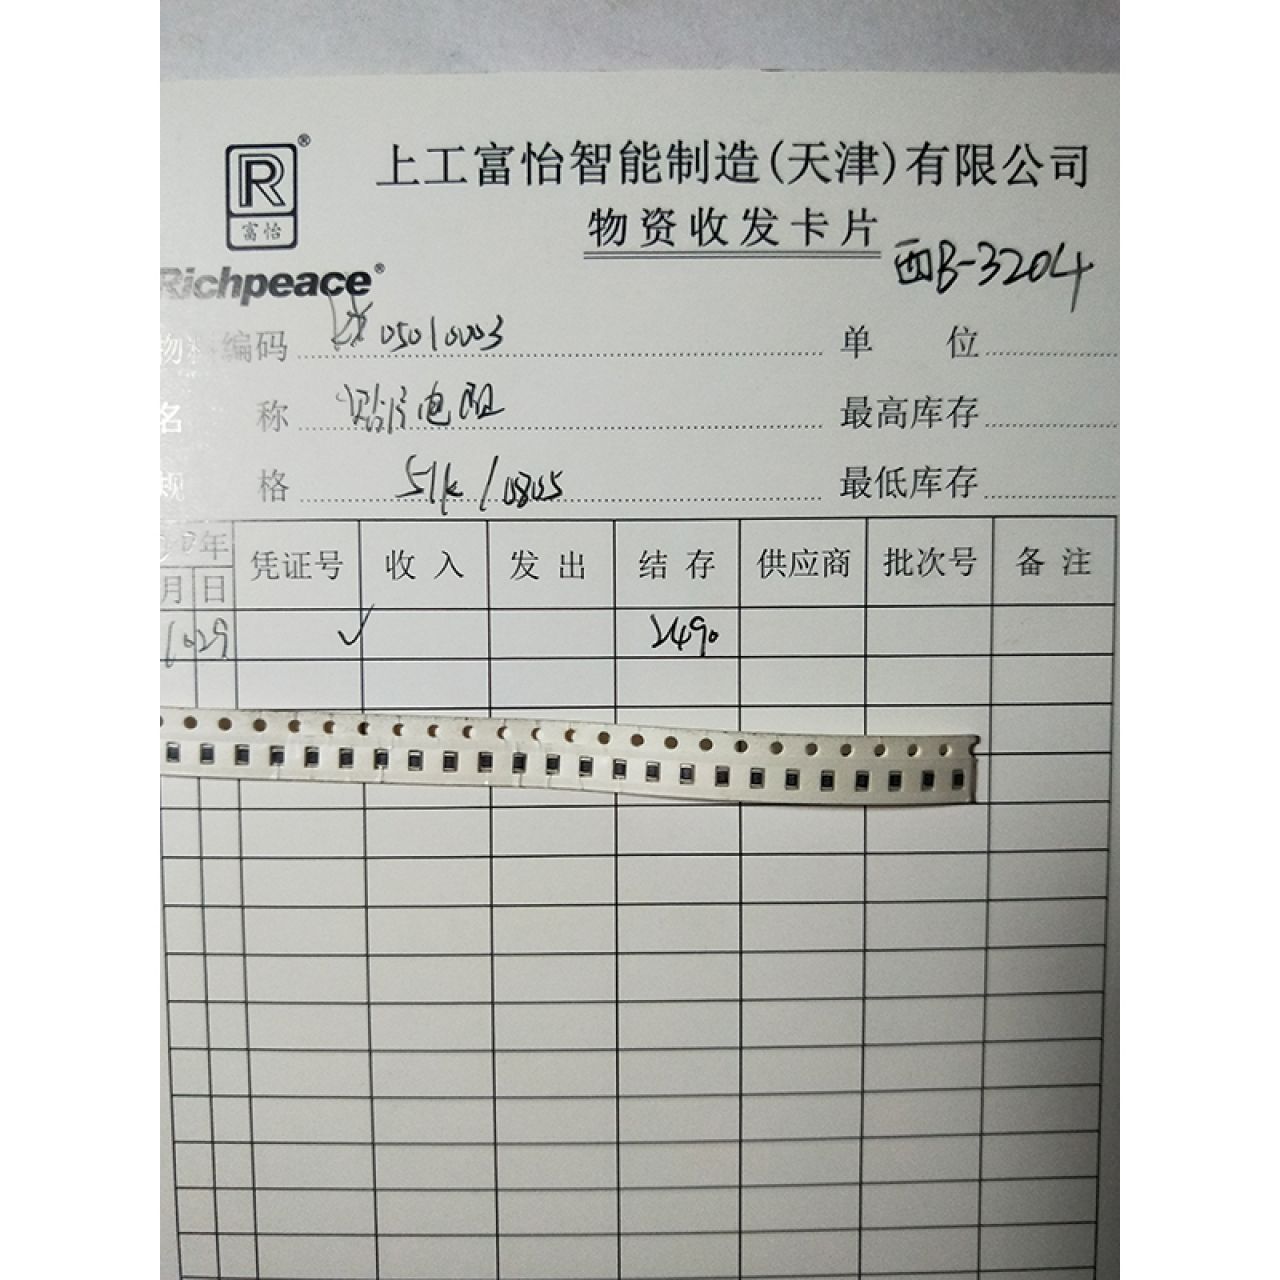 R®
富怡
上工富怡智能制造(天津)有限公司
物资收发卡片
西B-3204
Richpeace®
物料编码 05010003 单位
名称 贴片电阻 最高库存
规格 51k/0805 最低库存
年 凭证号 收入 发出 结存 供应商 批次号 备注
月 日
10 29 ✓ 2490